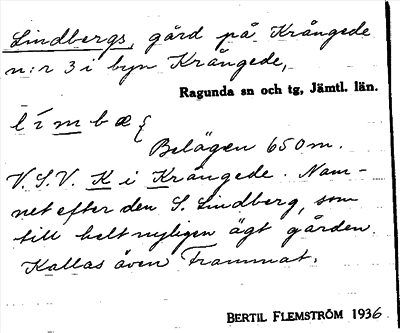 Lindbergs, gård på Krångede
n:r 3 i byn Krångede,
Ragunda sn och tg, Jämtl. län.
límbæ
Belägen 650 m.
V.S.V. K i Krångede. Nam-
net efter den S. Lindberg, som
till helt nyligen ägt gården.
Kallas även Frammat.
BERTIL FLEMSTRÖM 1936